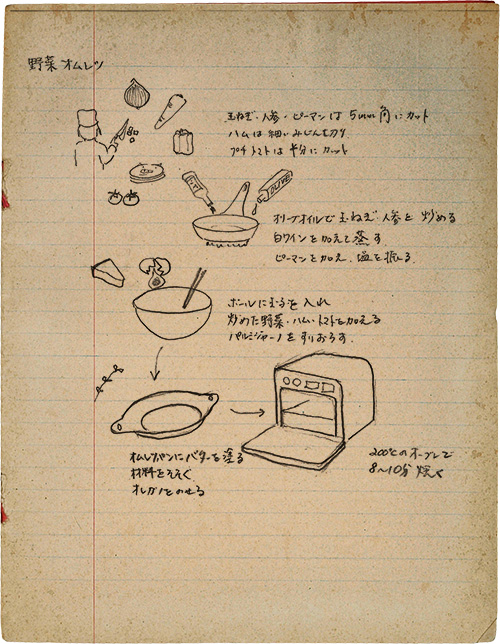 野菜オムレツ
玉ねぎ・人参・ピーマンは5mm角にカット
ハムは細いみじん切り
プチトマトは半分にカット
OLIVE
オリーブオイルで玉ねぎ、人参を炒める
白ワインを加えて蒸す
ピーマンを加え、塩を振る
ボールに玉子を入れ
炒めた野菜・ハム・トマトを加える
パルミジャーノをすりおろす.
オムレツパンにバターを塗る
材料をそそぐ
オレガノをのせる
200℃のオーブンで
8〜10分焼く